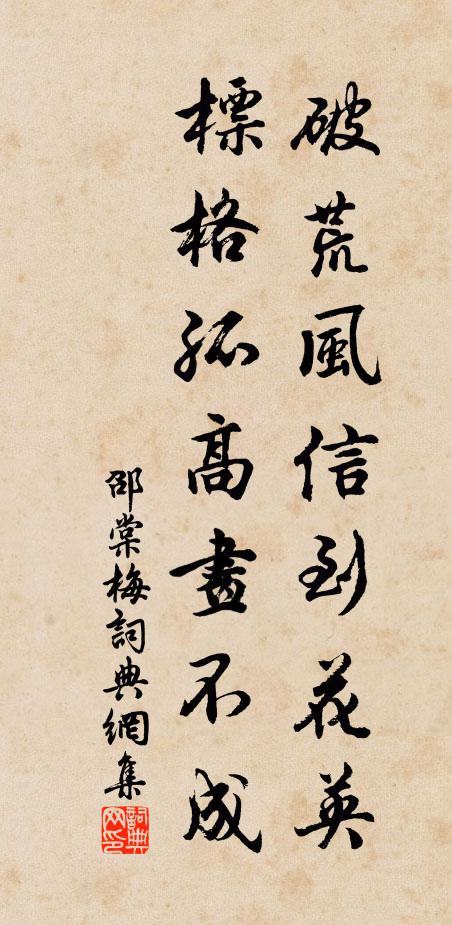 破荒風信到花英
標格孤高畫不成
邵棠梅詞典網集
詞典网印